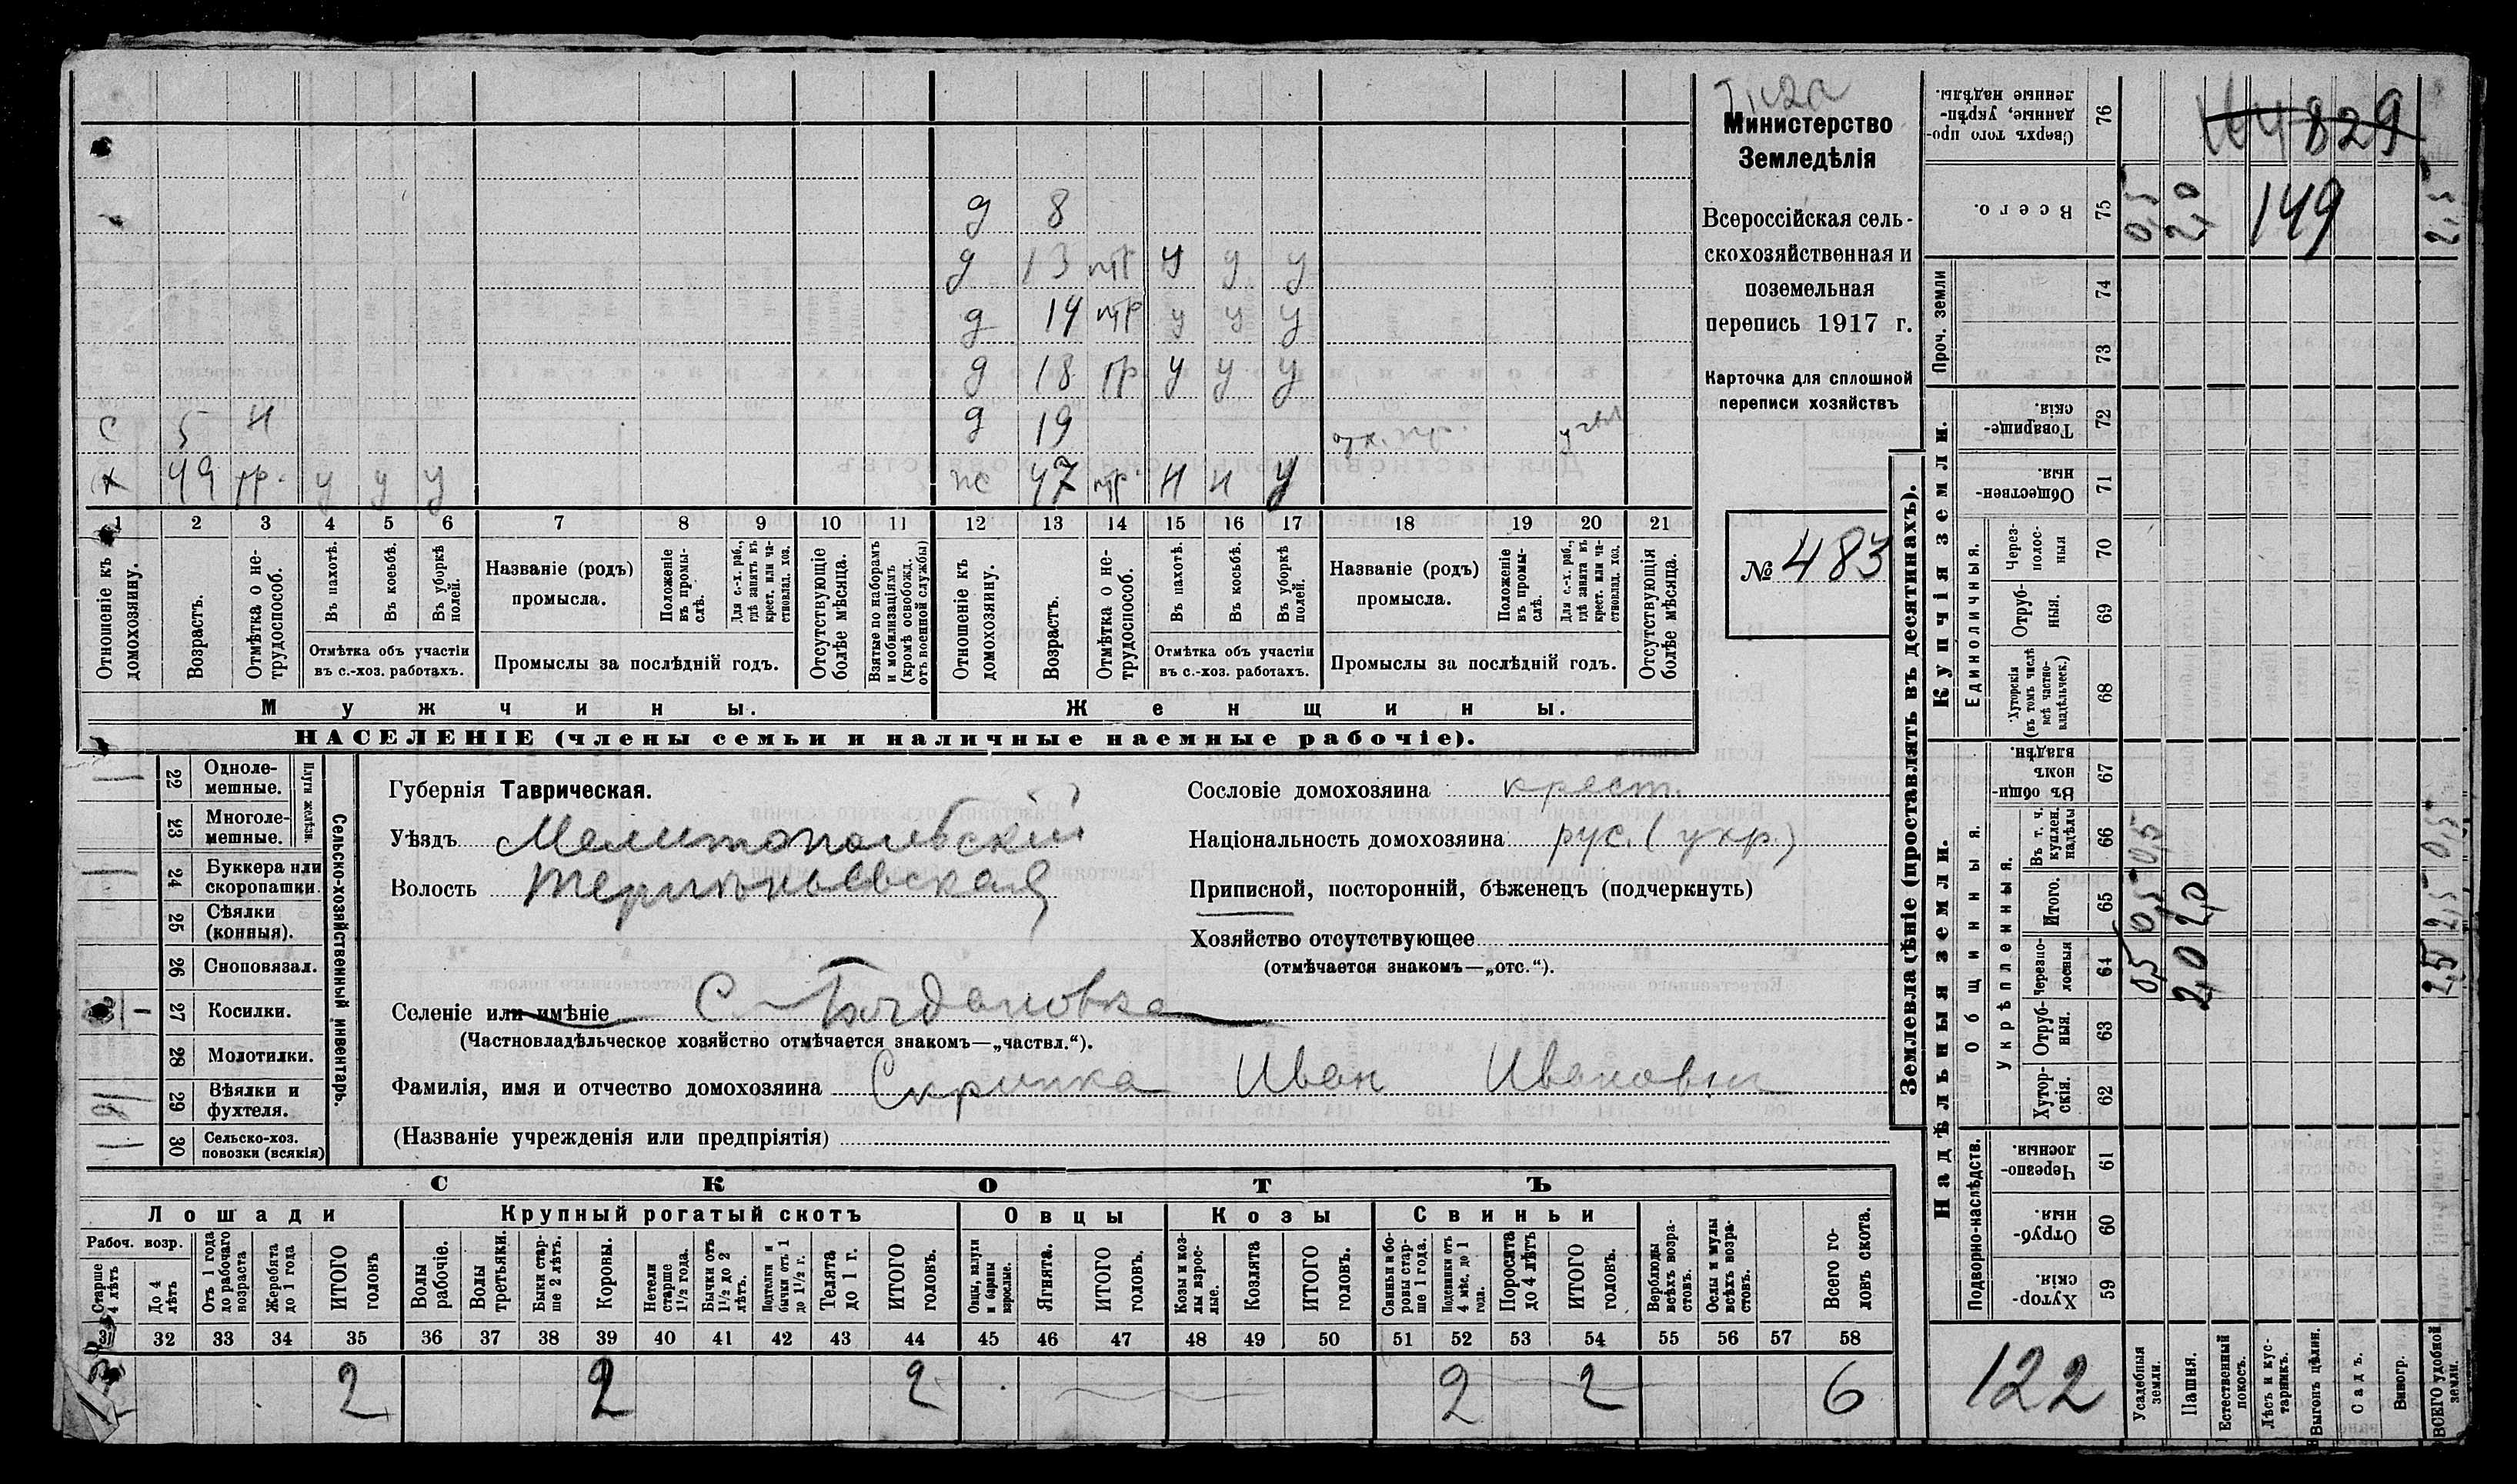 Министерство
Земледѣлія
Всероссійская сель-
скохозяйственная и
поземельная
перепись 1917 г.
Карточка для сплошной
переписи хозяйствъ
№ 483
д 8
д 13 пр у у у
д 14 пр у у у
д 18 пр у у у
с 5 н д 19
х 49 пр. у у у 47 пр. н н у
1 2 3 4 5 6 7 8 9 10 11 12 13 14 15 16 17 18 19 20 21
Отношеніе къ домохозяину.
Возрастъ.
Отмѣтка о не-трудоспособ.
Въ пахотѣ.
Въ косьбѣ.
Въ уборкѣ полей.
Отмѣтка объ участіи
въ с.-хоз. работахъ.
Названіе (родъ)
промысла.
Положеніе въ промы-слѣ.
Для с.-х. раб., гдѣ занятъ въ крест. или ча-стновлад. хоз.
Промыслы за послѣдній годъ.
Отсутствующіе болѣе мѣсяца.
Взятые по наборамъ и мобилизаціямъ (кромѣ освобожд. отъ военной службы)
Отношеніе къ домохозяину.
Возрастъ.
Отмѣтка о не-трудоспособ.
Въ пахотѣ.
Въ косьбѣ.
Въ уборкѣ полей.
Отмѣтка объ участіи
въ с.-хоз. работахъ.
Названіе (родъ)
промысла.
Положеніе въ промы-слѣ.
Для с.-х. раб., гдѣ занята въ крест. или ча-стновлад. хоз.
Промыслы за послѣдній годъ.
Отсутствующія болѣе мѣсяца.
Мужчины. Женщины.
НАСЕЛЕНІЕ (члены семьи и наличные наемные рабочіе).
Сельско-хозяйственный инвентарь.
Плуги желѣзн.
22 Одноле-мешные.
23 Многоле-мешные.
24 Буккера или скоропашки. 1
25 Сѣялки (конныя).
26 Сноповязал.
27 Косилки. 1
28 Молотилки.
29 Вѣялки и фухтеля.
30 Сельско-хоз. повозки (всякія)
Губернія Таврическая.
Уѣздъ Мелитопольскій
Волость Терпѣньевская
Селеніе или имѣніе С. Богдановка
(Частновладѣльческое хозяйство отмѣчается знакомъ—„частвл.“).
Фамилія, имя и отчество домохозяина Скрипка Иван Иванович
(Названіе учрежденія или предпріятія)
Сословіе домохозяина крест.
Національность домохозяина рус. (укр.)
Приписной, посторонній, бѣженецъ (подчеркнуть)
Хозяйство отсутствующее
(отмѣчается знакомъ—„отс.“).
СКОТЪ
Лошади Крупный рогатый скотъ Овцы Козы Свиньи
Рабоч. возр.
Старше 4 лѣтъ
До 4 лѣтъ
Отъ 1 года до рабочаго возраста
Жеребята до 1 года
ИТОГО головъ
Волы рабочіе.
Волы третьяки.
Быки стар-ше 2 лѣтъ.
Коровы.
Нетели старше 1½ года.
Бычки отъ 1½ до 2 лѣтъ.
Подтелки и бычки отъ 1 до 1½ г.
Телята до 1 г.
ИТОГО головъ.
Овцы, валухи и бараны взрослые.
Ягнята.
ИТОГО головъ.
Козы и коз-лы взрос-лые.
Козлята
ИТОГО головъ.
Свиньи и бо-ровы стар-ше 1 года.
Подсвинки отъ 4 мѣс. до 1 года.
Поросята до 4 лѣтъ
ИТОГО головъ.
Верблюды всѣхъ возра-стовъ.
Ослы и мулы всѣхъ возра-стовъ.
Всего го-ловъ скота.
31 32 33 34 35 36 37 38 39 40 41 42 43 44 45 46 47 48 49 50 51 52 53 54 55 56 57 58
2 2 2 2 2 6
Землевладѣніе (проставлять въ десятинахъ).
Надѣльныя земли. Купчія земли. Проч. земли
Подворно-наслѣдств. Общинныя. Укрѣпленныя. Единоличныя.
76 Сверхъ того про-данные, укрѣп-ленные надѣлы.
75 Всего. 0,5 2,0 2,5
74
73
72 Товарище-скія.
71 Обществен-ныя.
70 Через-полос-ныя
69 Отруб-ныя.
68 Хуторскія (въ томъ числѣ всѣ частно-владѣльческ.)
67 Въ общи-номъ владѣн.
66 Въ т. ч. куплен. надѣлы 0,5 0,5
65 Итого. 0,5 2,0 2,5
64 Черезпо-лосныя 0,5 2,0 2,5
63 Отруб-ныя.
62 Хутор-скія.
61 Черезпо-лосныя
60 Отруб-ныя.
59 Хутор-скія.
829
149
122
Усадебныя земли.
Пашня.
Естественный покосъ.
Лѣсъ и кус-тарникъ.
Выгонъ цѣлин.
Садъ.
Виногр.
ВСЕГО удобной земли.